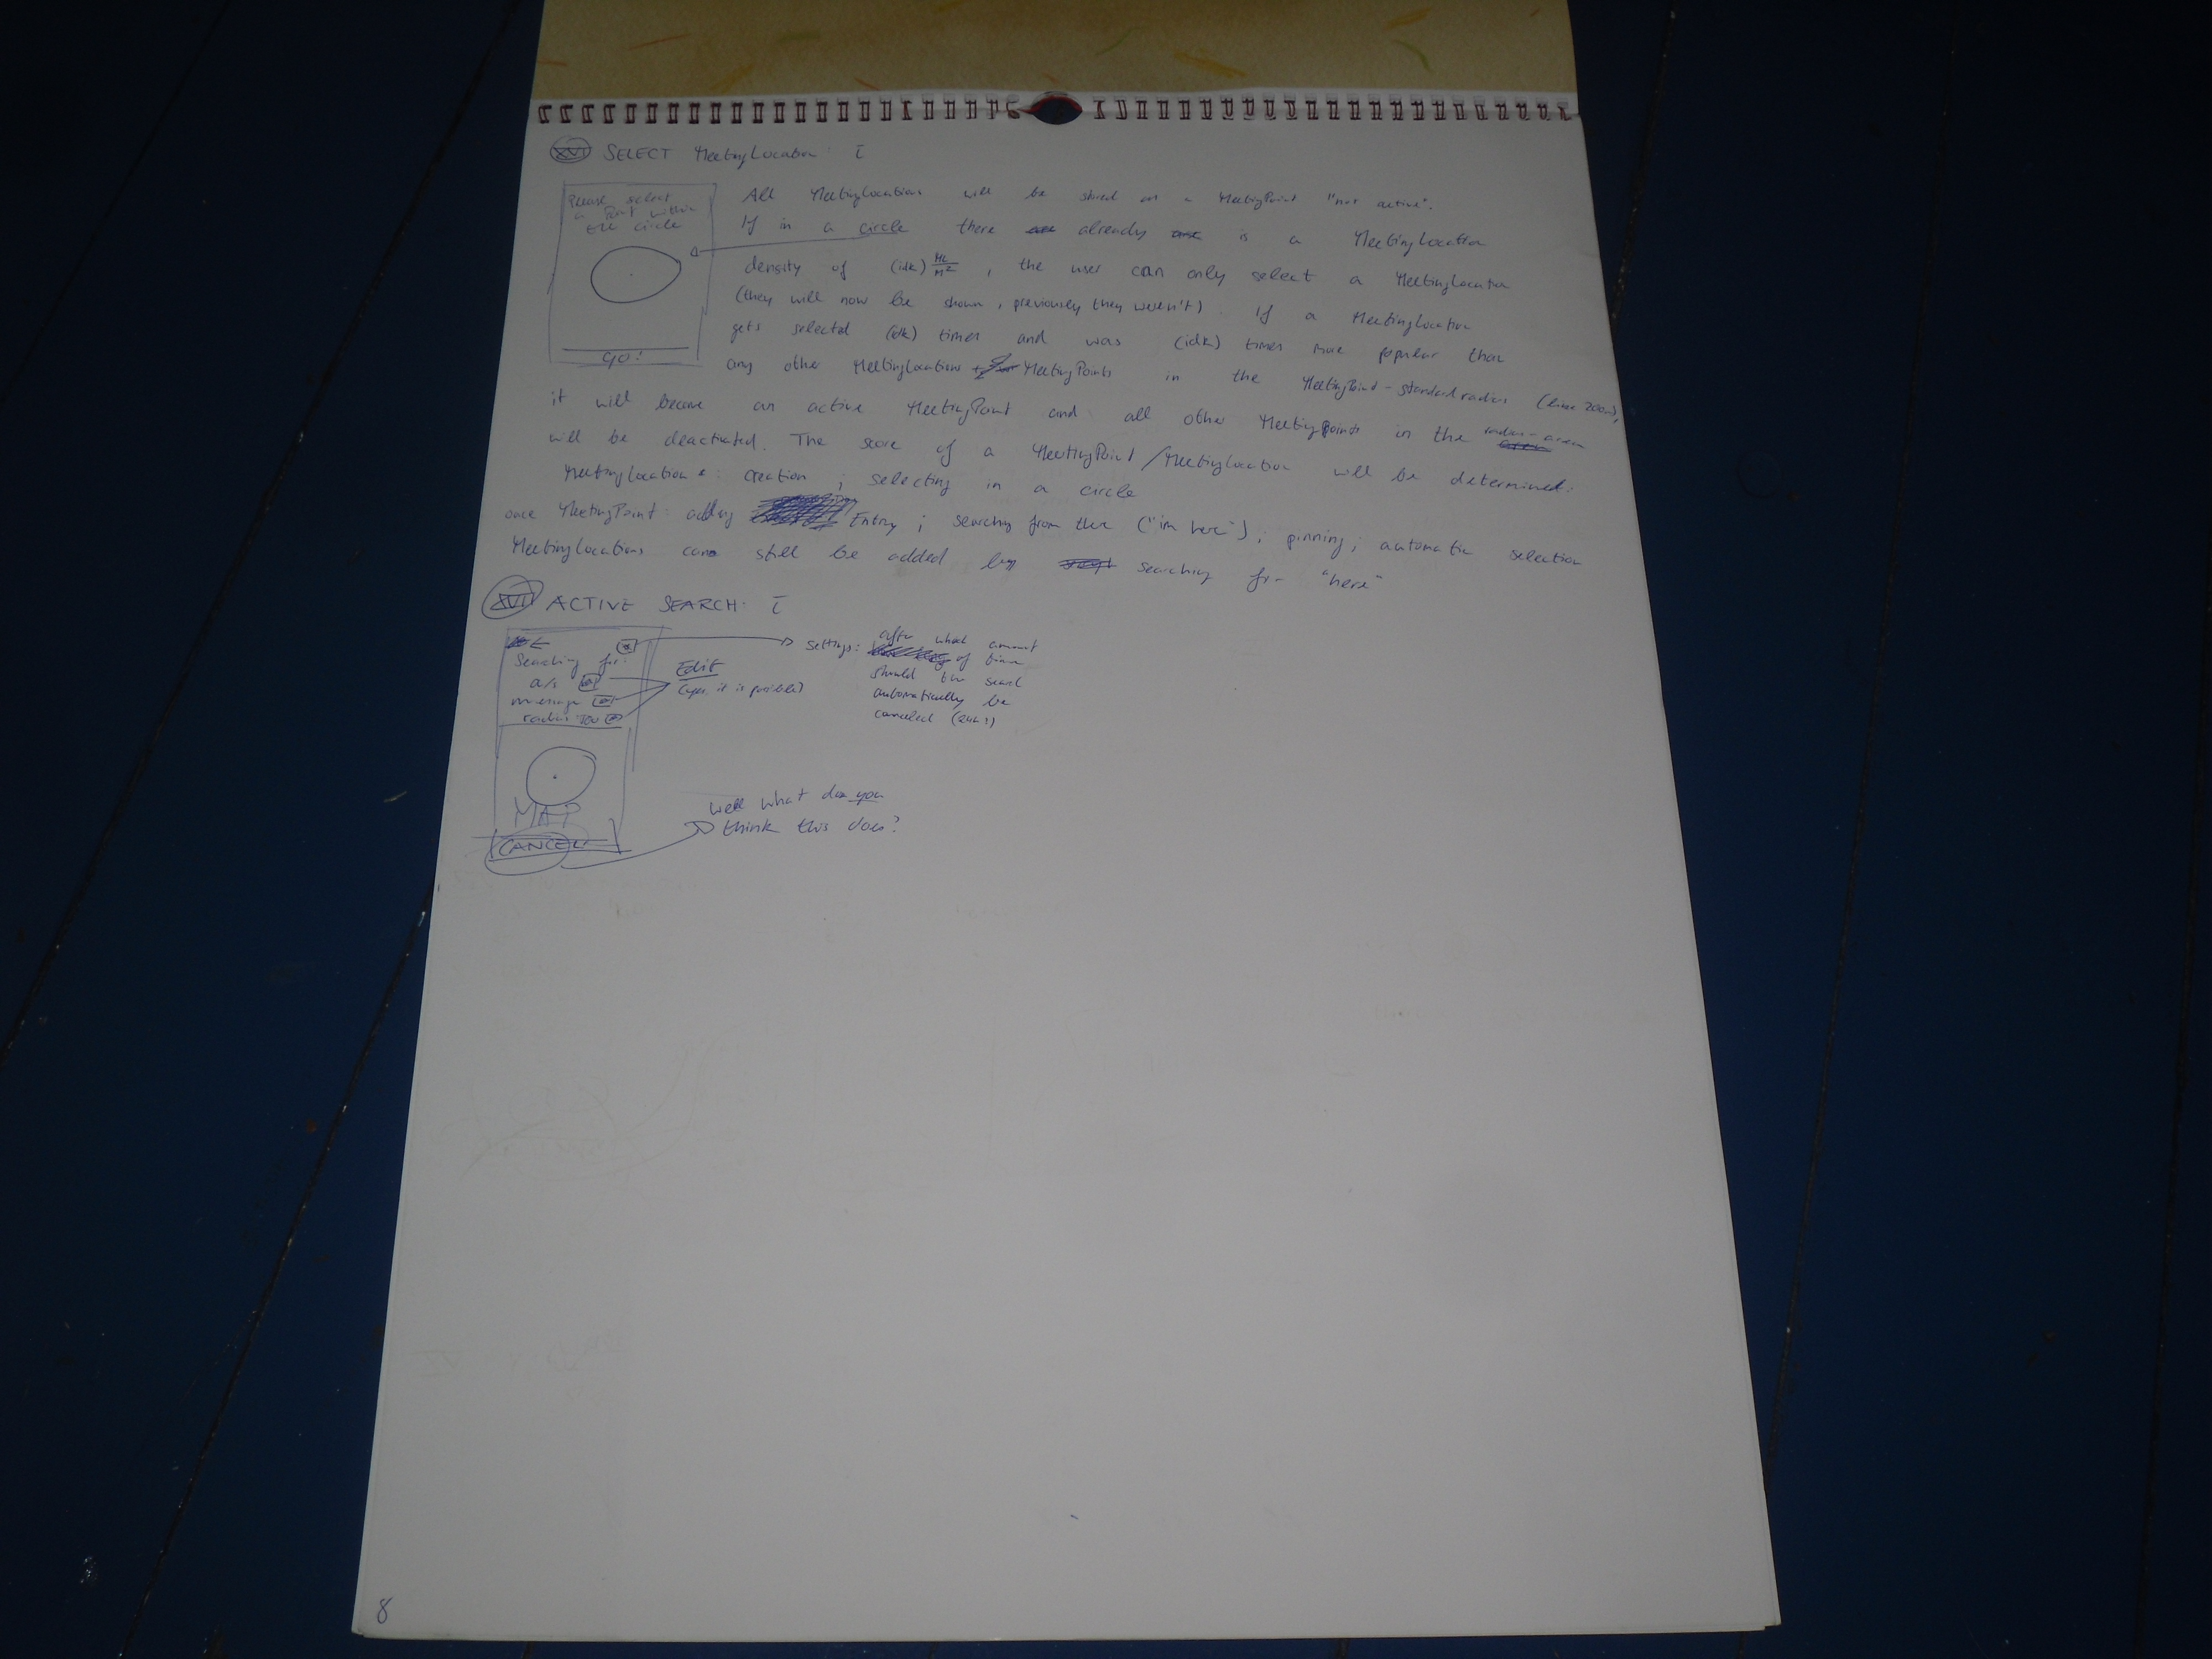 XVI SELECT MeetingLocation: I
Please select
a Point within
the circle
GO!
All MeetingLocations will be stored as a MeetingPoint "not active".
If in a circle there already is a MeetingLocation
density of (idk) ML/M², the user can only select a MeetingLocation
(they will now be shown, previously they weren't). If a MeetingLocation
gets selected (idk) times and was (idk) times more popular than
any other MeetingLocations MeetingPoints in the MeetingPoint-standardradius (200m),
it will become an active MeetingPoint and all other MeetingPoints in the radius-area
will be deactivated. The score of a MeetingPoint/MeetingLocation will be determined:
MeetingLocation: creation ; selecting in a circle
once MeetingPoint: adding Entry ; searching from there ("im here") ; pinning ; automatic selection
MeetingLocations can still be added by searching for "here"
XVII ACTIVE SEARCH: I
Searching for:
a/s
message
radius
Edit
(yes, it is possible)
settings: after what amount
of time
should the search
automatically be
canceled (24h?)
MAP
CANCEL
Well what do you
think this does?
8